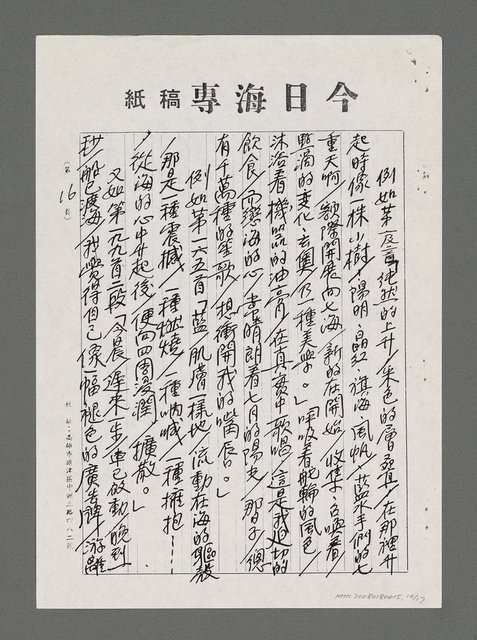 今日海專稿紙
例如第一反首純然的上升/朱色的層疊/在那裡升
起時像一株小樹/陽明、晶紅、旗海、風帆/藍水手們的七
重天啊/額際開展向七海/新的在開始/收集 看/
點滴的變化/玄奧乃一種美學。」「呼吸着舵輪的風色/
沐浴着機器的油膏/在真實中歌唱/這是我迫切的
飲食/而戀海的心/ 晴朗着七月的陽光/那日子/總
有千萬種的笙歌/想衝開我的嘴唇。」
例如第一六五首「藍/肌膚一樣地/流動在海的軀殼
/那是一種震撼/一種燃燒/一種吶喊/一種擁抱……
/從海的心中升起後/便向四周浸潤/擴散。」
又如第一九九首二段「今晨/遲來一步/車已啟動/晚到
秒/船已渡海/我覺得自己/像一幅褪色的廣告牌/游離
(第16頁)
社址:高雄市旗津區中洲三路四八二號
NMTL20080180015.16/17